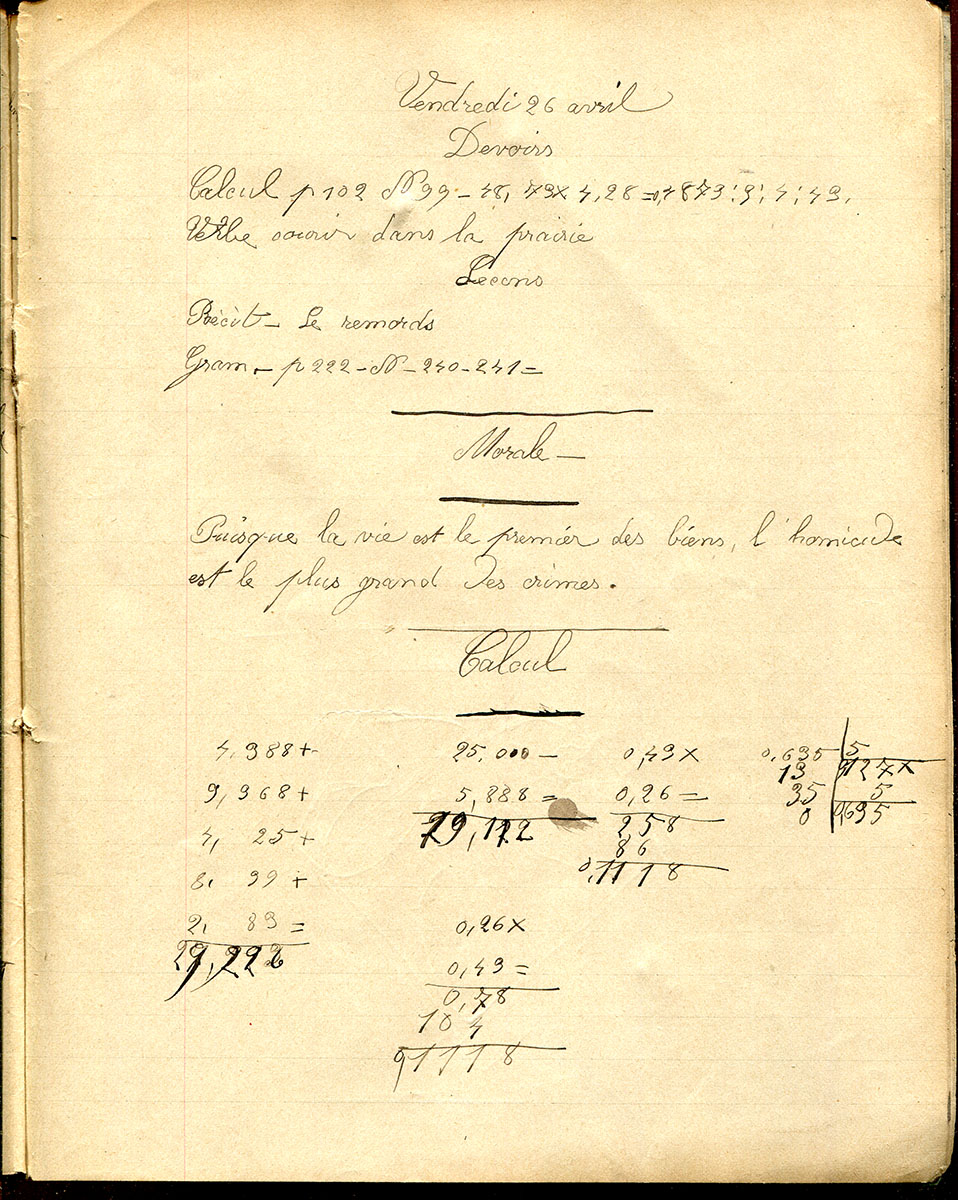 Vendredi 26 avril
Devoirs
Calcul p 102 N 99 – 48, 73x 4,28 = 0,4873 : 3 : 4 : 43.
Verbe courir dans la prairie
Lecons
Récit – Le remords
Gram. – p 222 – N – 240 – 241 =
Morale –
Puisque la vie est le premier des biens, l'homicide
est le plus grand des crimes.
Calcul
4,388 + 25,000 – 0,43 x 0,635 | 5
9,368 + 5,888 = 0,26 = 13 0,127 x
4, 25 + 19,112 258 35 5
8, 39 + 86 0 0,635
0,1118
2, 83 = 0,26 x
29,226 0,43 =
0,78
104
0,1118